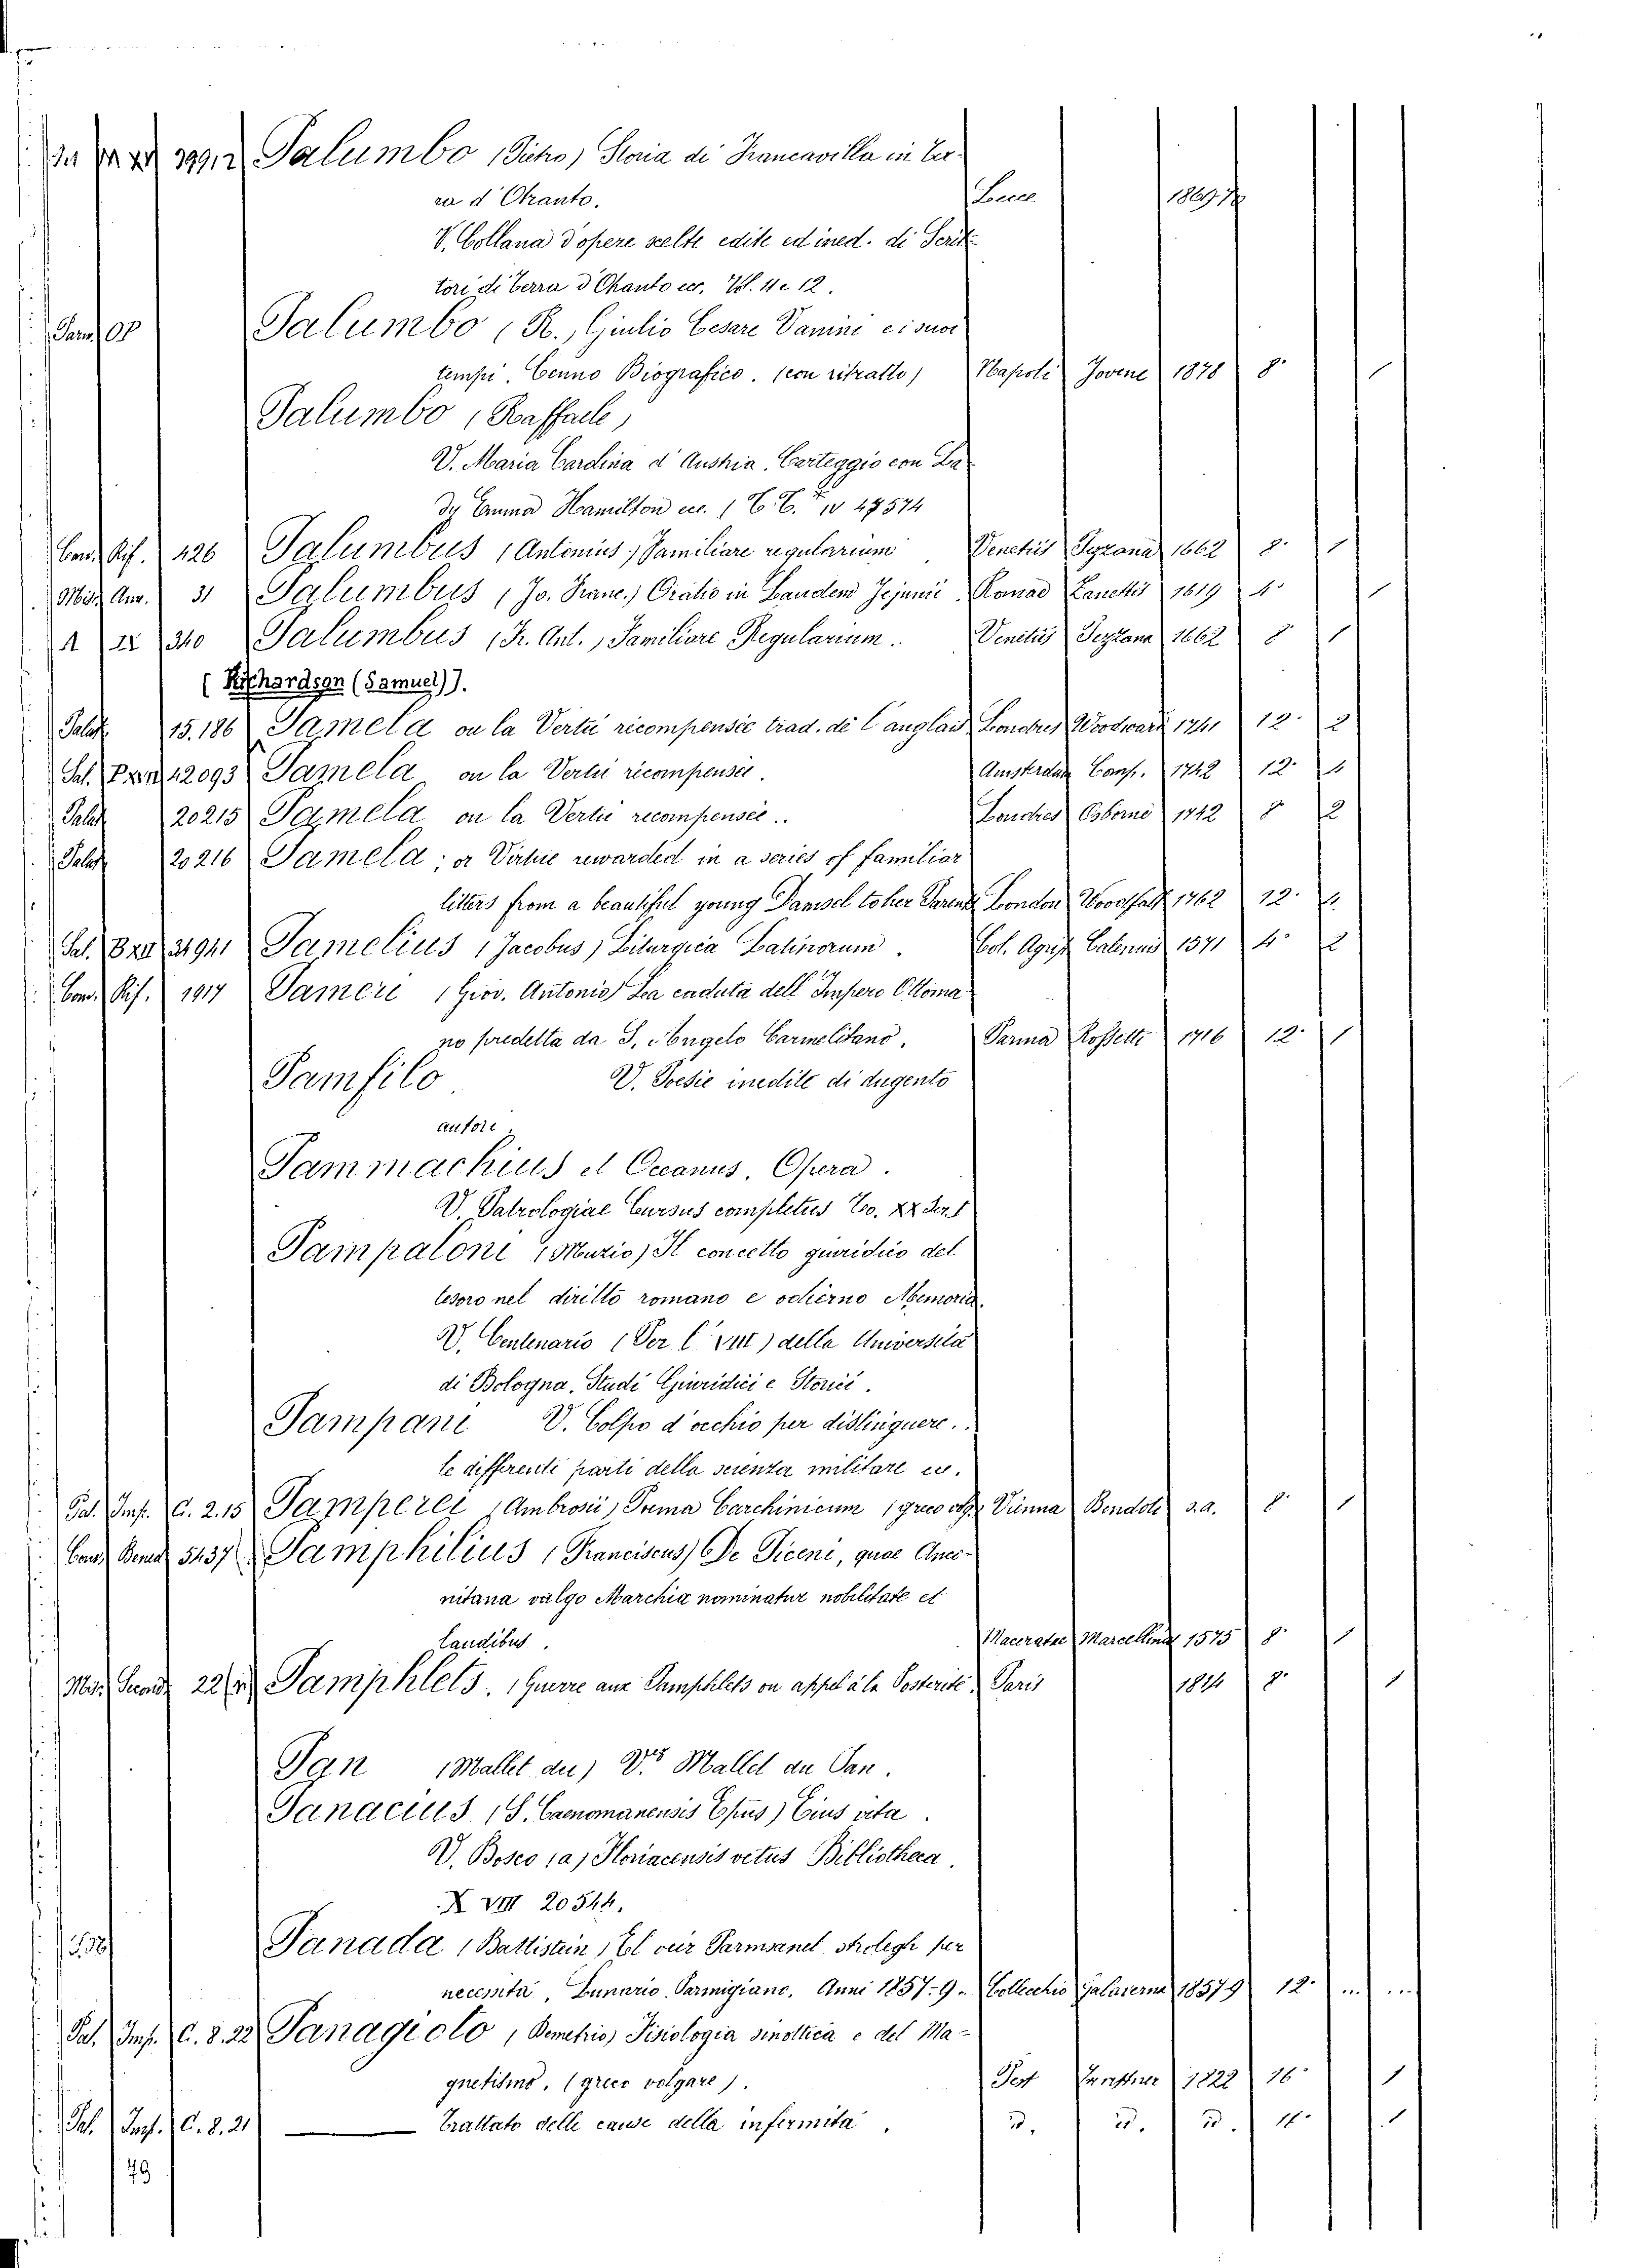 Palumbo (Pietro) Storia di Francavilla in Ter-
ra d'Otranto. Lecce 1869-70
V. Collana d'opere scelte edite ed ined. di Scrit-
tori di Terra d'Otranto ecc. Vol. 11 e 12.
Palumbo (R.) Giulio Cesare Vanini e i suoi
tempi. Cenno Biografico. (con ritratto) Napoli Jovene 1878 8° 1
Palumbo (Raffaele)
V. Maria Carolina d'Austria. Carteggio con La-
dy Emma Hamilton ecc. 47574
Conv. Rif. 426 Palumbus (Antonius) Familiare regularium Venetiis Pezzana 1662 8° 1
Misc. Ann. 31 Palumbus (Jo. Franc.) Oratio in Laudem Jejunii Romae Zanettis 1619 4° 1
A IX 340 Palumbus (Fr. Ant.) Familiare Regularium. Venetiis Pezzana 1662 8° 1
(Richardson (Samuel)).
Palat. 15.186 Pamela ou la Vertù ricompensée trad. de l'anglais Londres Woodward 1741 12° 2
Sal. 12093 Pamela ou la Vertù ricompensée. Amsterdam Comp. 1742 12° 4
Palat 20215 Pamela ou la Vertù recompensée.. Londres Osborne 1742 8° 2
Palat 20216 Pamela; or Virtue rewarded in a series of familiar
litters from a beautiful young Damsel to her Parents London Woodfall 1762 12° 4
Sal. 24941 Pamelius (Jacobus) Liturgica Latinorum. Col. Agrip. Calenius 1571 4° 2
Conv. Rif. 1917 Pameri (Giov. Antonio) La caduta dell'Impero Ottoma-
no predetta da S. Angelo Carmelitano. Parma Rossetti 1716 12° 1
Pamfilo V. Poesie inedite di dugento
autori.
Pammachius et Oceanus. Opera.
V. Patrologiae Cursus completus To. XX Ser. I
Pampaloni (Muzio) Il concetto giuridico del
tesoro nel diritto romano e odierno Memoria.
V. Centenario (Per l'VIII) della Università
di Bologna. Studi Giuridici e Storici.
Pampani V. Colpo d'occhio per distinguere..
le differenti parti della scienza militare ec.
Pal. Imp. C. 2.15 Pamperei (Ambrosii) Poema Carchinicum (greco volg.) Vienna Bendoti s.a. 8° 1
Conv. Bened 5437 Pamphilius (Franciscus) De Piceni, quae Anco-
nitana vulgo Marchia nominatur nobilitate et
Laudibus. Maceratae Marcellinus 1575 8° 1
Misc. Second. 22 Pamphlets. (Guerre aux Pamphlets ou appel à la Posterité) Paris 1814 8° 1
Pan (Mallet du) V.s Mallet du Pan.
Panacius (S. Caenomanensis Epus) Eius vita.
V. Bosco (a) Floriacensis vetus Bibliotheca.
X VIII 20544.
Panada (Battistein) El veir Parmsanel strolegh per
necessità. Lunario Parmigiano. Anni 1857-9.. Collecchio Galaverna 1857 9 12° ... ...
Pal. Imp. C. 8.22 Panagiolo (Demetrio) Fisiologia sinottica e del Ma-
gnetismo. (greco volgare). Pest 1822 16° 1
Pal. Imp. C. 8. 21 ——— Trattato delle cause della infermità. id. id. id. 1
79